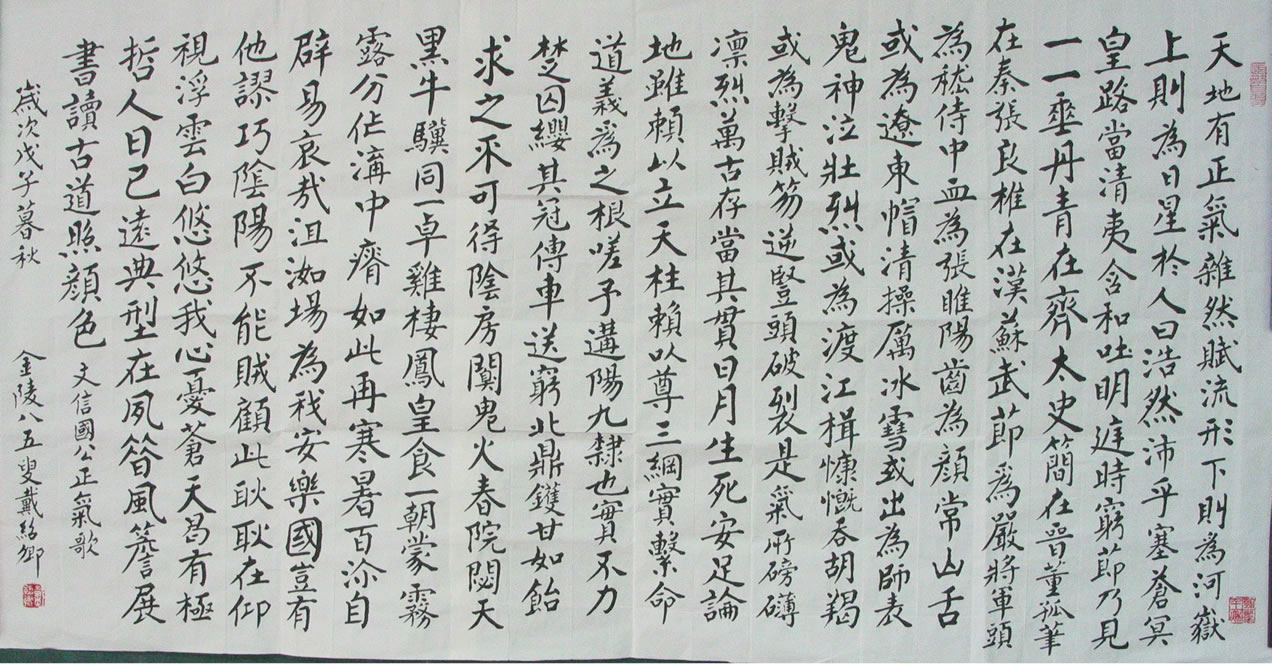 天地有正氣雜然賦流形下則為河嶽
上則為日星於人曰浩然沛乎塞蒼冥
皇路當清夷含和吐明庭時窮節乃見
一一垂丹青在齊太史簡在晉董狐筆
在秦張良椎在漢蘇武節為嚴將軍頭
為嵇侍中血為張睢陽齒為顏常山舌
或為遼東帽清操厲冰雪或出為師表
鬼神泣壯烈或為渡江楫慷慨吞胡羯
或為擊賊笏逆豎頭破裂是氣所磅礡
凛烈萬古存當其貫日月生死安足論
地雖賴以立天柱賴以尊三綱實繫命
道義為之根嗟予遘陽九隸也實不力
楚囚纓其冠傳車送窮北鼎鑊甘如飴
求之不可得陰房闃鬼火春院閟天
黑牛驥同一卓雞棲鳳皇食一朝蒙霧
露分作溝中瘠如此再寒暑百沴自
辟易哀哉沮洳場為我安樂國豈有
他謬巧陰陽不能賊顧此耿耿在仰
視浮雲白悠悠我心憂蒼天曷有極
哲人日已遠典型在夙昔風簷展
書讀古道照顏色 文信國公正氣歌
歲次戊子暮秋 金陵八五叟戴紹卿